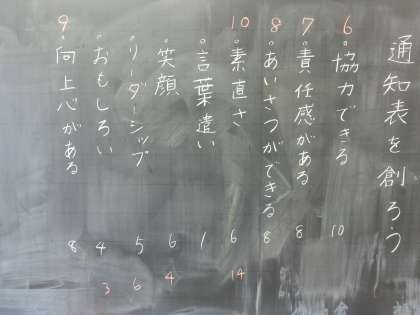 通知表を創ろう
6 ・協力できる 10
7 ・責任感がある 8
8 ・あいさつができる 8
10 ・素直さ 6 14
・言葉遣い 1
・笑顔 6 4
・リーダーシップ 5 6
・おもしろい 4 3
9 ・向上心がある 8